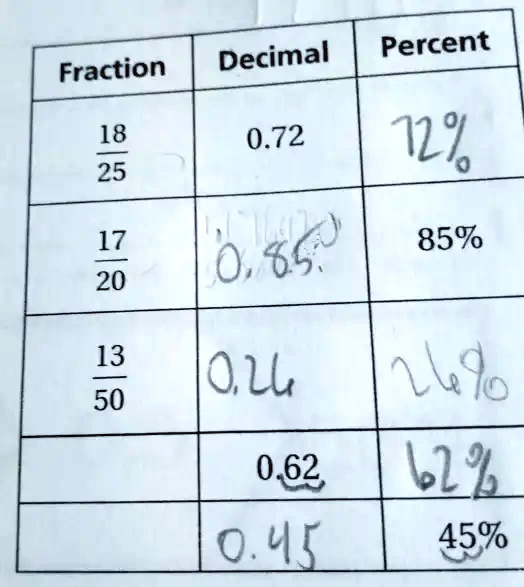 Fraction Decimal Percent
18/25 0.72 72%
17/20 0.85 85%
13/50 0.26 26%
0.62 62%
0.45 45%